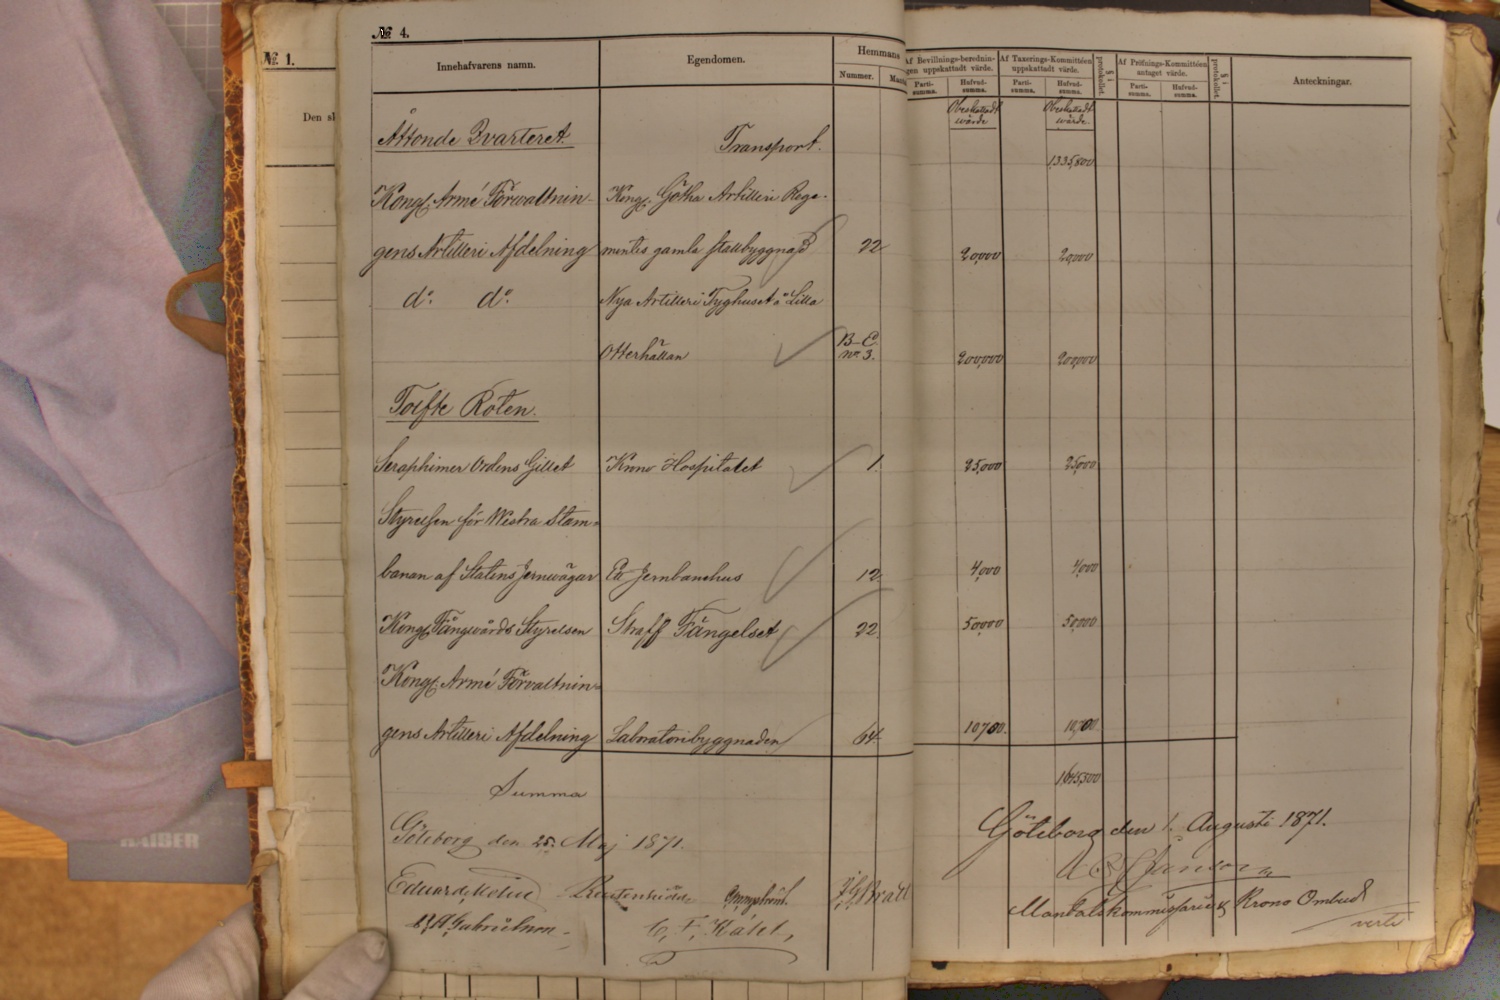 № 1.
Den sk
№ 4.
Innehafvarens namn. Egendomen. Hemmans Nummer. Mantal
Af Bevillnings-berednin-gen uppskattadt värde. Parti-summa. Hufvud-summa. Af Taxerings-Kommittéen uppskattadt värde. Parti-summa. Hufvud-summa. § i protokollet. Af Pröfnings-Kommittéen antaget värde. Parti-summa. Hufvud-summa. § i protokollet. Anteckningar.
Obeskattadt värde Obeskattadt värde.
Åttonde Qvarteret. Transport. 1,335,800
Kongl. Armé Förvaltnin- Kongl. Götha Artilleri Rege-
gens Artilleri Afdelning mentes gamla stallbyggnad 22 20,000 20,000
do. do. Nya Artilleri Tyghuset å Lilla
Otterhällan B-C. No 3. 200,000 200,000
Tolfte Roten.
Seraphimer Ordens Gillet Krono Hospitalet 1. 25,000 25,000
Styrelsen för Westra Stam-
banan af Statens Jernvägar Ett Jernbanehus 12. 4,000 4,000
Kongl. Fångvårds Styrelsen Straff Fängelset 22. 50,000 50,000
Kongl. Armé Förvaltnin-
gens Artilleri Afdelning Laboratoribyggnaden 64. 10,700. 10,700
Summa 1,645,500
Göteborg den 25. Maj 1871. Göteborg den 1. Augusti 1871.
Mantalskommissarie & Krono Ombud
verte
KAISER